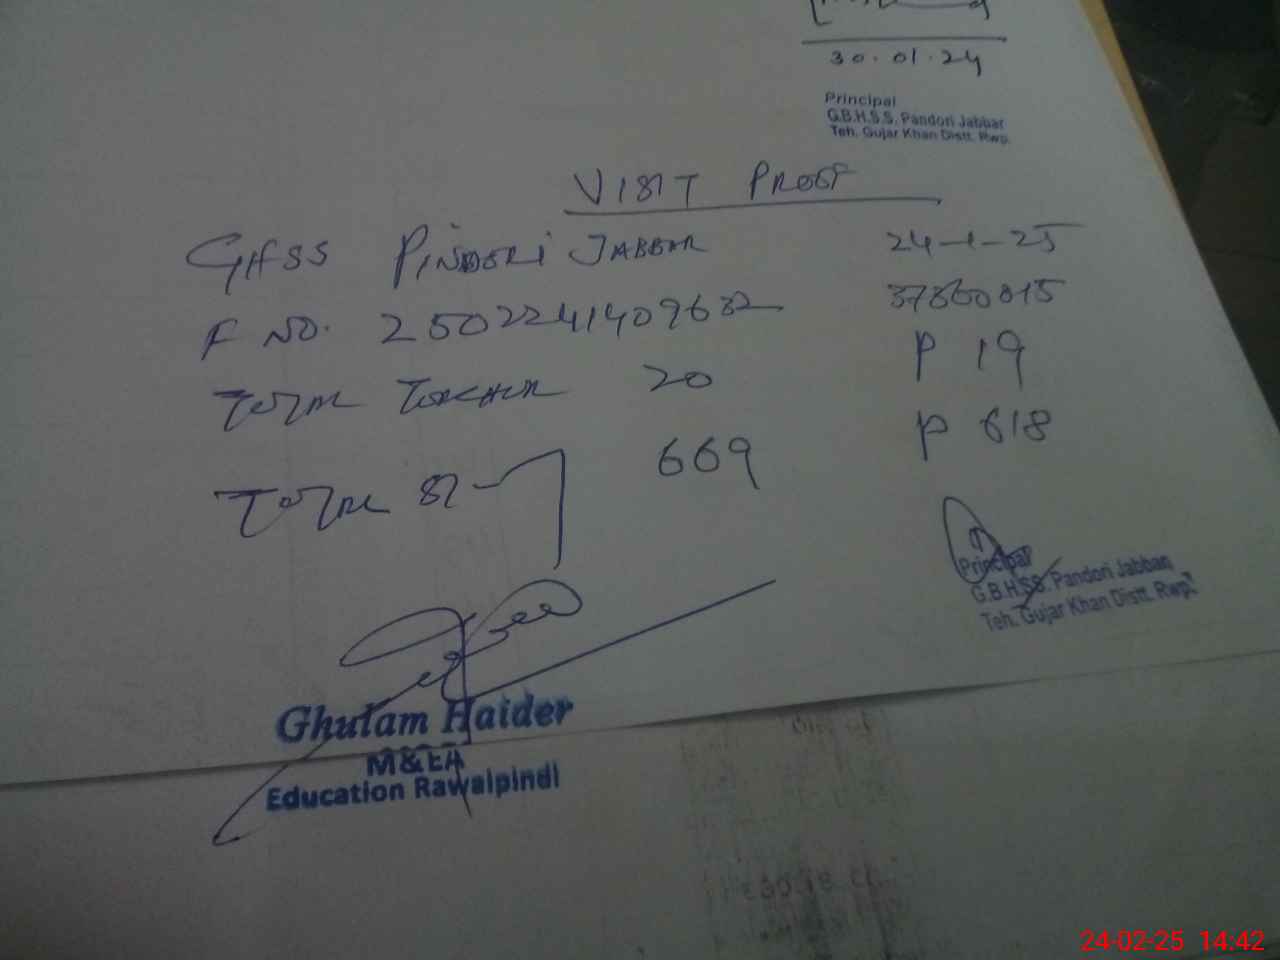 30.01.24
Principal
G.B.H.S.S. Pandori Jabbar
Teh. Gujar Khan Distt. Rwp.
VISIT PROOF
GHSS PINDORI JABBAR 24-1-25
F NO. 2502241409632 37360015
TOTAL TEACHER 20 P 19
TOTAL ST 669 P 618
Principal
G.B.H.SS. Pandori Jabban
Teh. Gujar Khan Distt. Rwp.
Ghulam Haider
M&EA
Education Rawalpindi
24-02-25 14:42